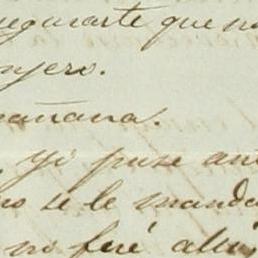 segurarte que no
njero.
mañana.
yi puse an
no se le manda
no fué allí